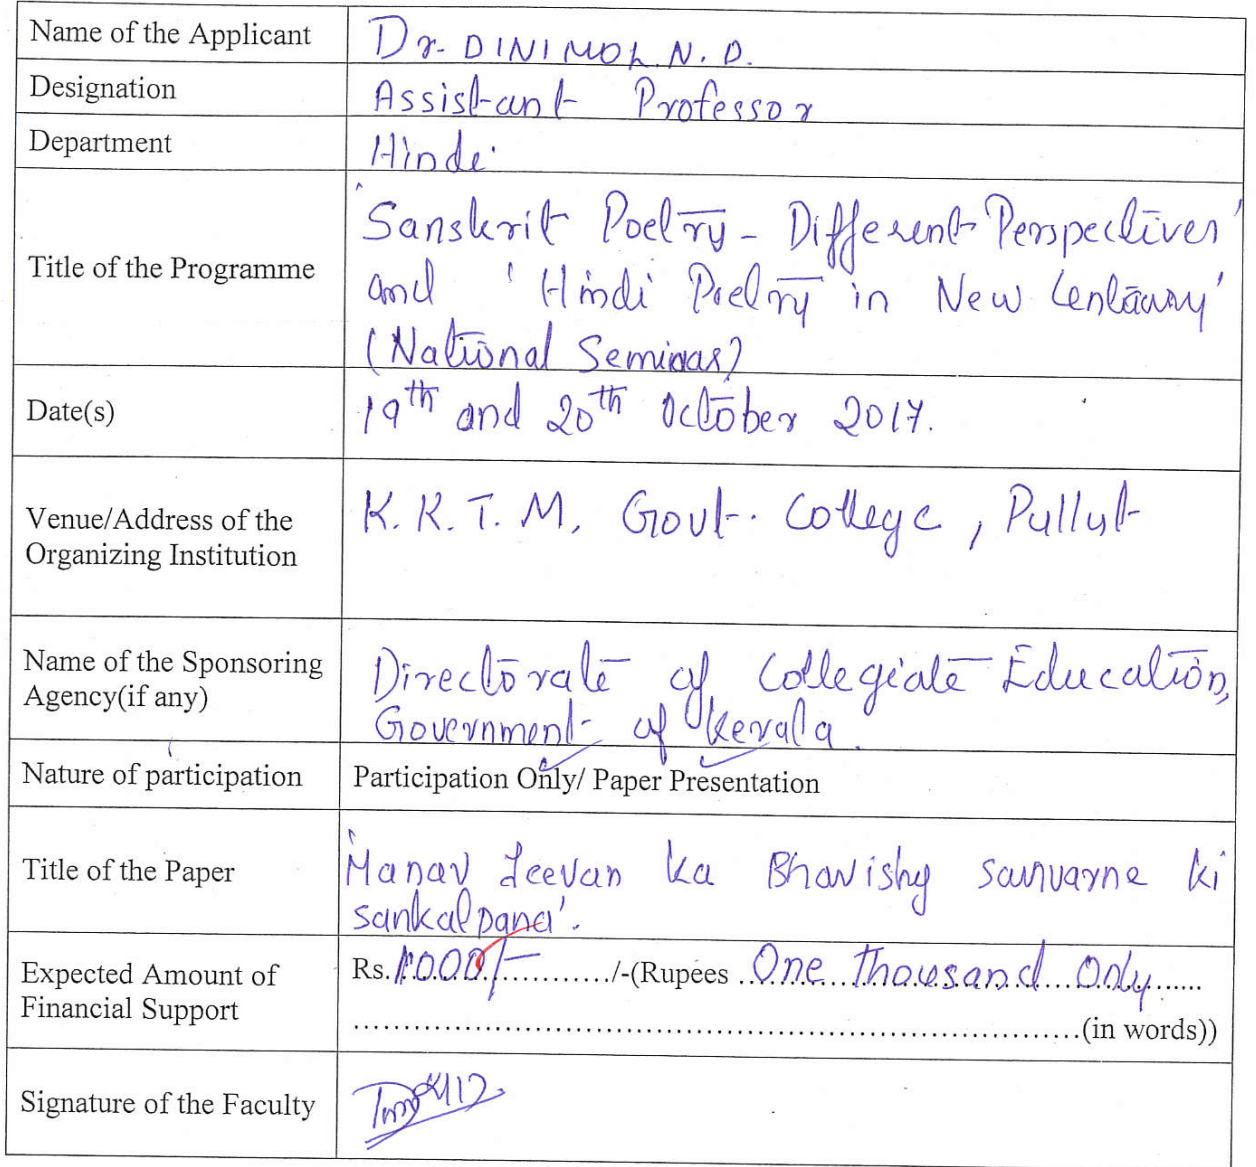 Name of the Applicant Dr. DINIMOL N. D.
Designation Assistant Professor
Department Hindi
Title of the Programme
'Sanskrit Poetry - Different Perspectives'
and 'Hindi Poetry in New Century'
(National Seminar)
Date(s) 19th and 20th October 2017.
Venue/Address of the
Organizing Institution
K.K.T.M. Govt. College, Pullut
Name of the Sponsoring
Agency(if any)
Directorate of Collegiate Education,
Government of Kerala.
Nature of participation Participation Only/ Paper Presentation
Title of the Paper
'Manav Jeevan ka Bhavishy sanvarne ki
sankalpana'.
Expected Amount of
Financial Support
Rs. 1000/- ............/-(Rupees ...One thousand Only......
....................................................................(in words))
Signature of the Faculty